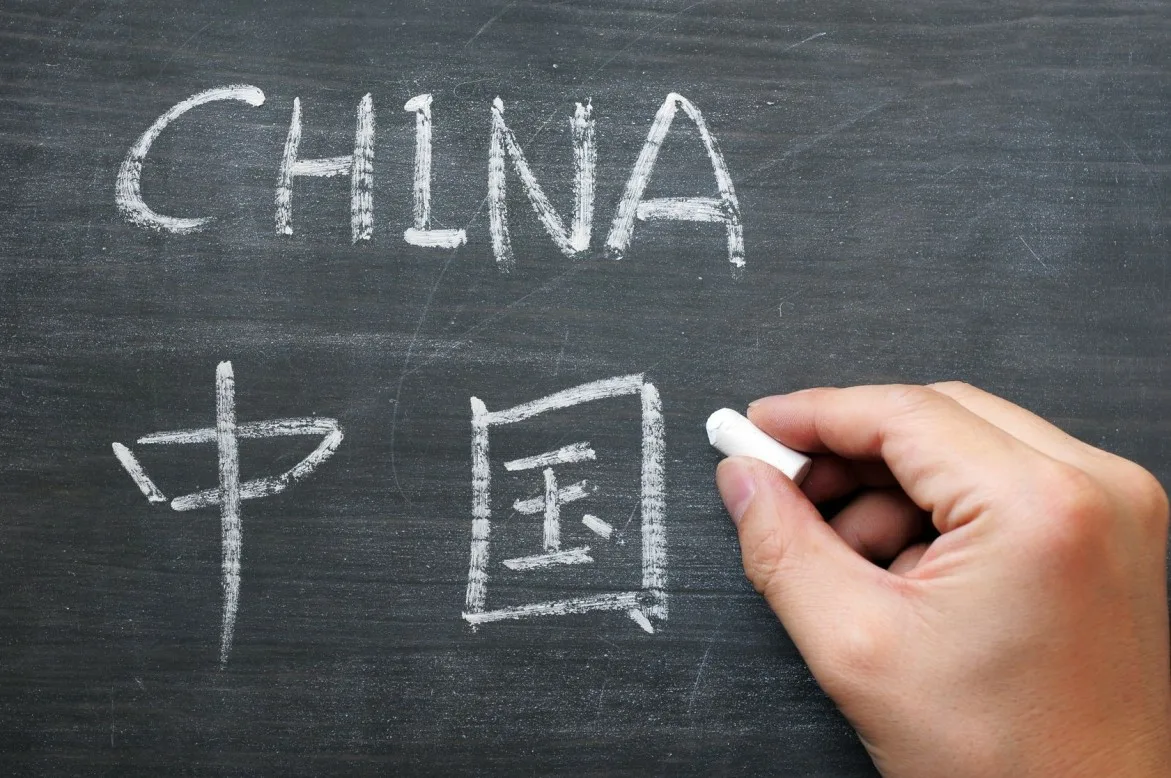 CHINA
中国